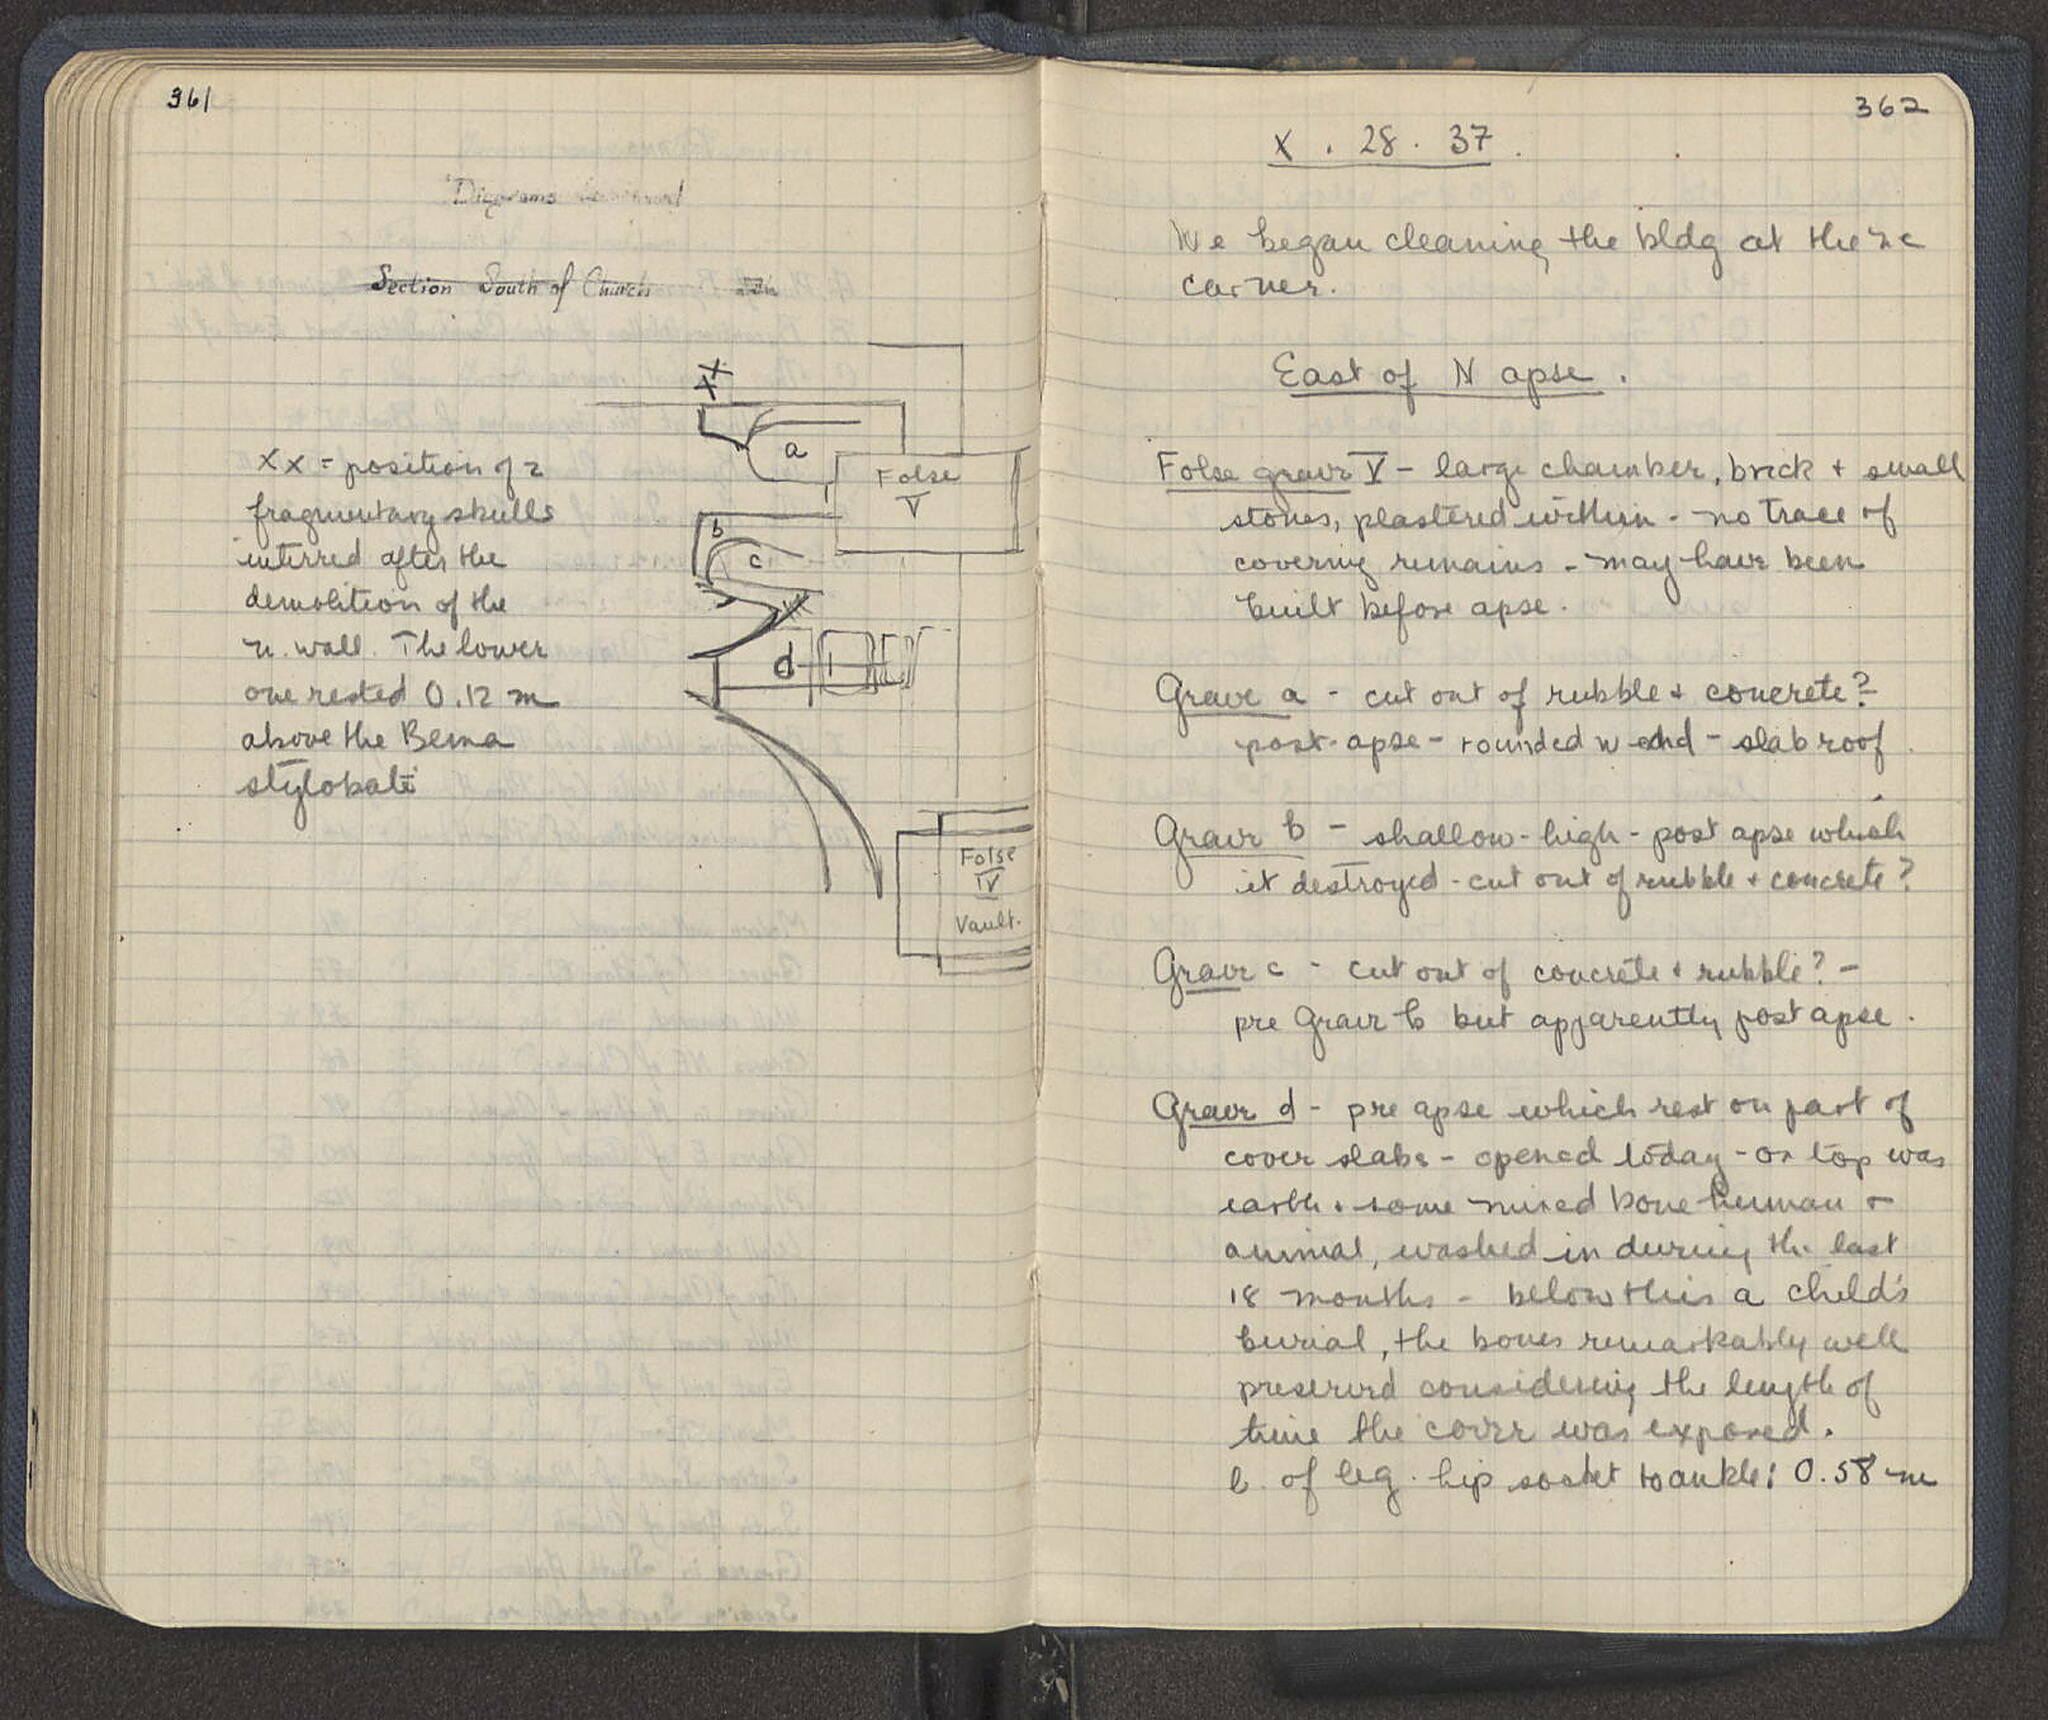 361
Diagrams
Section South of Church
XX = position of 2
fragmentary skulls
interred after the
demolition of the
n. wall. The lower
one rested 0.12 m
above the Bema
stylobate
XX
a
False
V
b
c
d
False
IV
Vault.
362
X . 28 . 37 .
We began cleaning the bldg at the ne
corner.
East of N apse .
False grave V - large chamber, brick + small
stones, plastered within - no trace of
covering remains - may have been
built before apse.
Grave a - cut out of rubble + concrete? -
post-apse - rounded w end - slab roof.
Grave b - shallow - high - post apse which
it destroyed - cut out of rubble + concrete?
Grave c - cut out of concrete + rubble? -
pre Grave b but apparently post apse.
Grave d - pre apse which rest on part of
cover slabs - opened today - on top was
earth + some mixed bone human +
animal, washed in during the last
18 months - below this a child's
burial, the bones remarkably well
preserved considering the length of
time the cover was exposed.
l. of leg. hip socket to ankle: 0.58 m